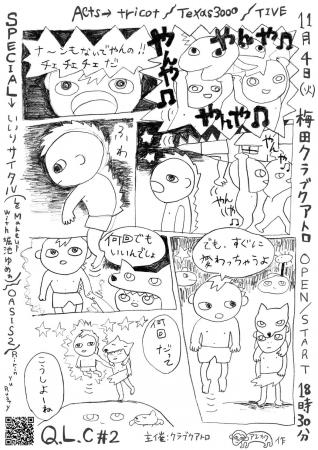 Acts→ tricot / Texas3000 / TIVE
11月4日(火) 梅田クラブクアトロ OPEN/START 18時30分
SPECIAL→いいリサイタル
(Le Makeup
with 堀池ゆめぁ)
/OASIS2
やんや♫
やんや♫
やんや♫
やんや♫
ナーンもないでやんの!!
チェチェチェだ
ふわ
何回でも
いいんでしょ
でも、すぐに
変わっちゃうよ
何回
だって
こうしよーね
Q.L.C #2
主催:クラブクアトロ
作